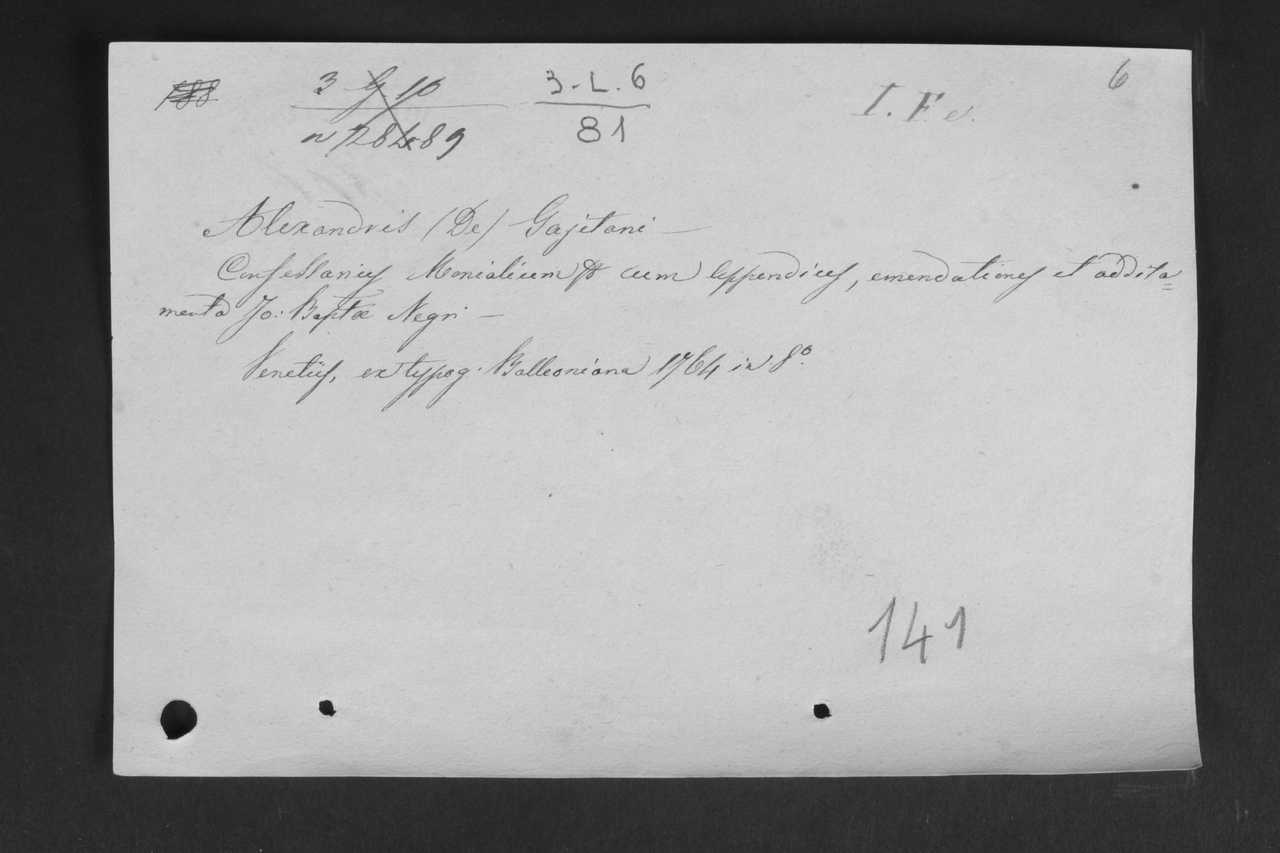 188 3 G 10 3-L.6 I. F e. 6
n 728489 81
Alexandris (De) Gajetani —
Confessarius Monialium & cum appendices, emendationes et addita=
menta Jo: Baptæ Negri —
Venetiis, ex typog. Balleoniana 1764 in 8.º
141